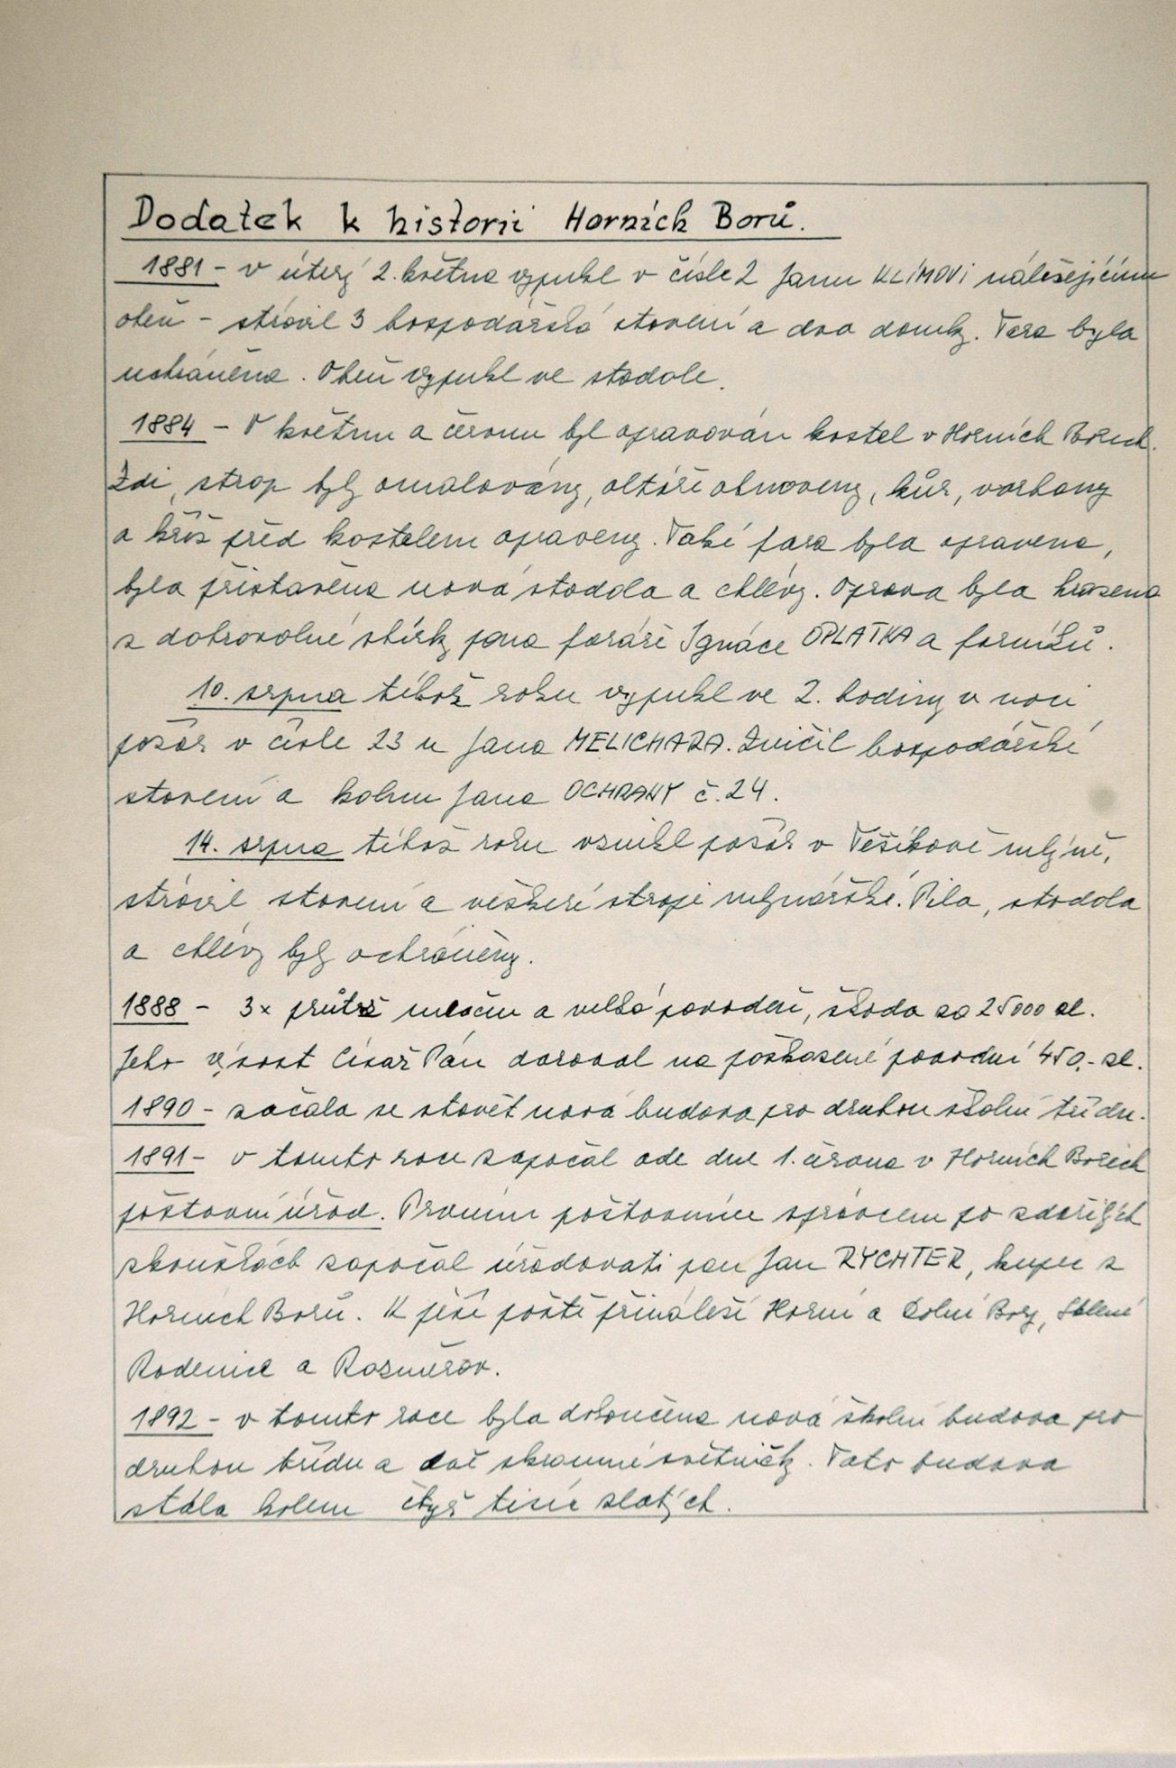 Dodatek k historii Horních Borů.
1881 - v úterý 2. května vypukl v čísle 2 Janu KLÍMOVI náležejícímu
oheň - strávil 3 hospodářská stavení a dva domky. Fara byla
uchráněna. Oheň vypukl ve stodole.
1884 - V květnu a červnu byl opravován kostel v Horních Borech.
Zdi, strop byly omalovány, oltáře obnoveny, kůr, varhany
a kříž před kostelem opraveny. Také fara byla opravena,
byla přistavěna nová stodola a chlévy. Oprava byla hrazena
z dobrovolné sbírky pana faráře Ignáce OPLATKA a farníků.
10. srpna téhož roku vypukl ve 2. hodiny v noci
požár v čísle 23 u Jana MELICHARA. Zničil hospodářské
stavení a kolnu Jana OCHRANY č. 24.
14. srpna téhož roku vznikl požár v Téšíkově mlýně,
strávil stavení a veškeré stroje mlynářské. Pila, stodola
a chlévy byly ochráněny.
1888 - 3x průtrž mračen a velká povodeň, škoda za 25000 zl.
Jeho výsost Císař Pán daroval na poškozené povodní 450,- zl.
1890 - začala se stavět nová budova pro druhou školní třídu.
1891 - v tomto roce započal ode dne 1. června v Horních Borech
poštovní úřad. Prvním poštovním správcem po zdařilých
zkouškách započal úřadovati pan Jan RYCHTER, kupec z
Horních Borů. K jeho poště přináleží Horní a Dolní Bory, Sklené
Radenice a Rousměrov.
1892 - v tomto roce byla dokončena nová školní budova pro
druhou třídu a dvě skromné světničky. Tato budova
stála kolem čtyř tisíc zlatých.